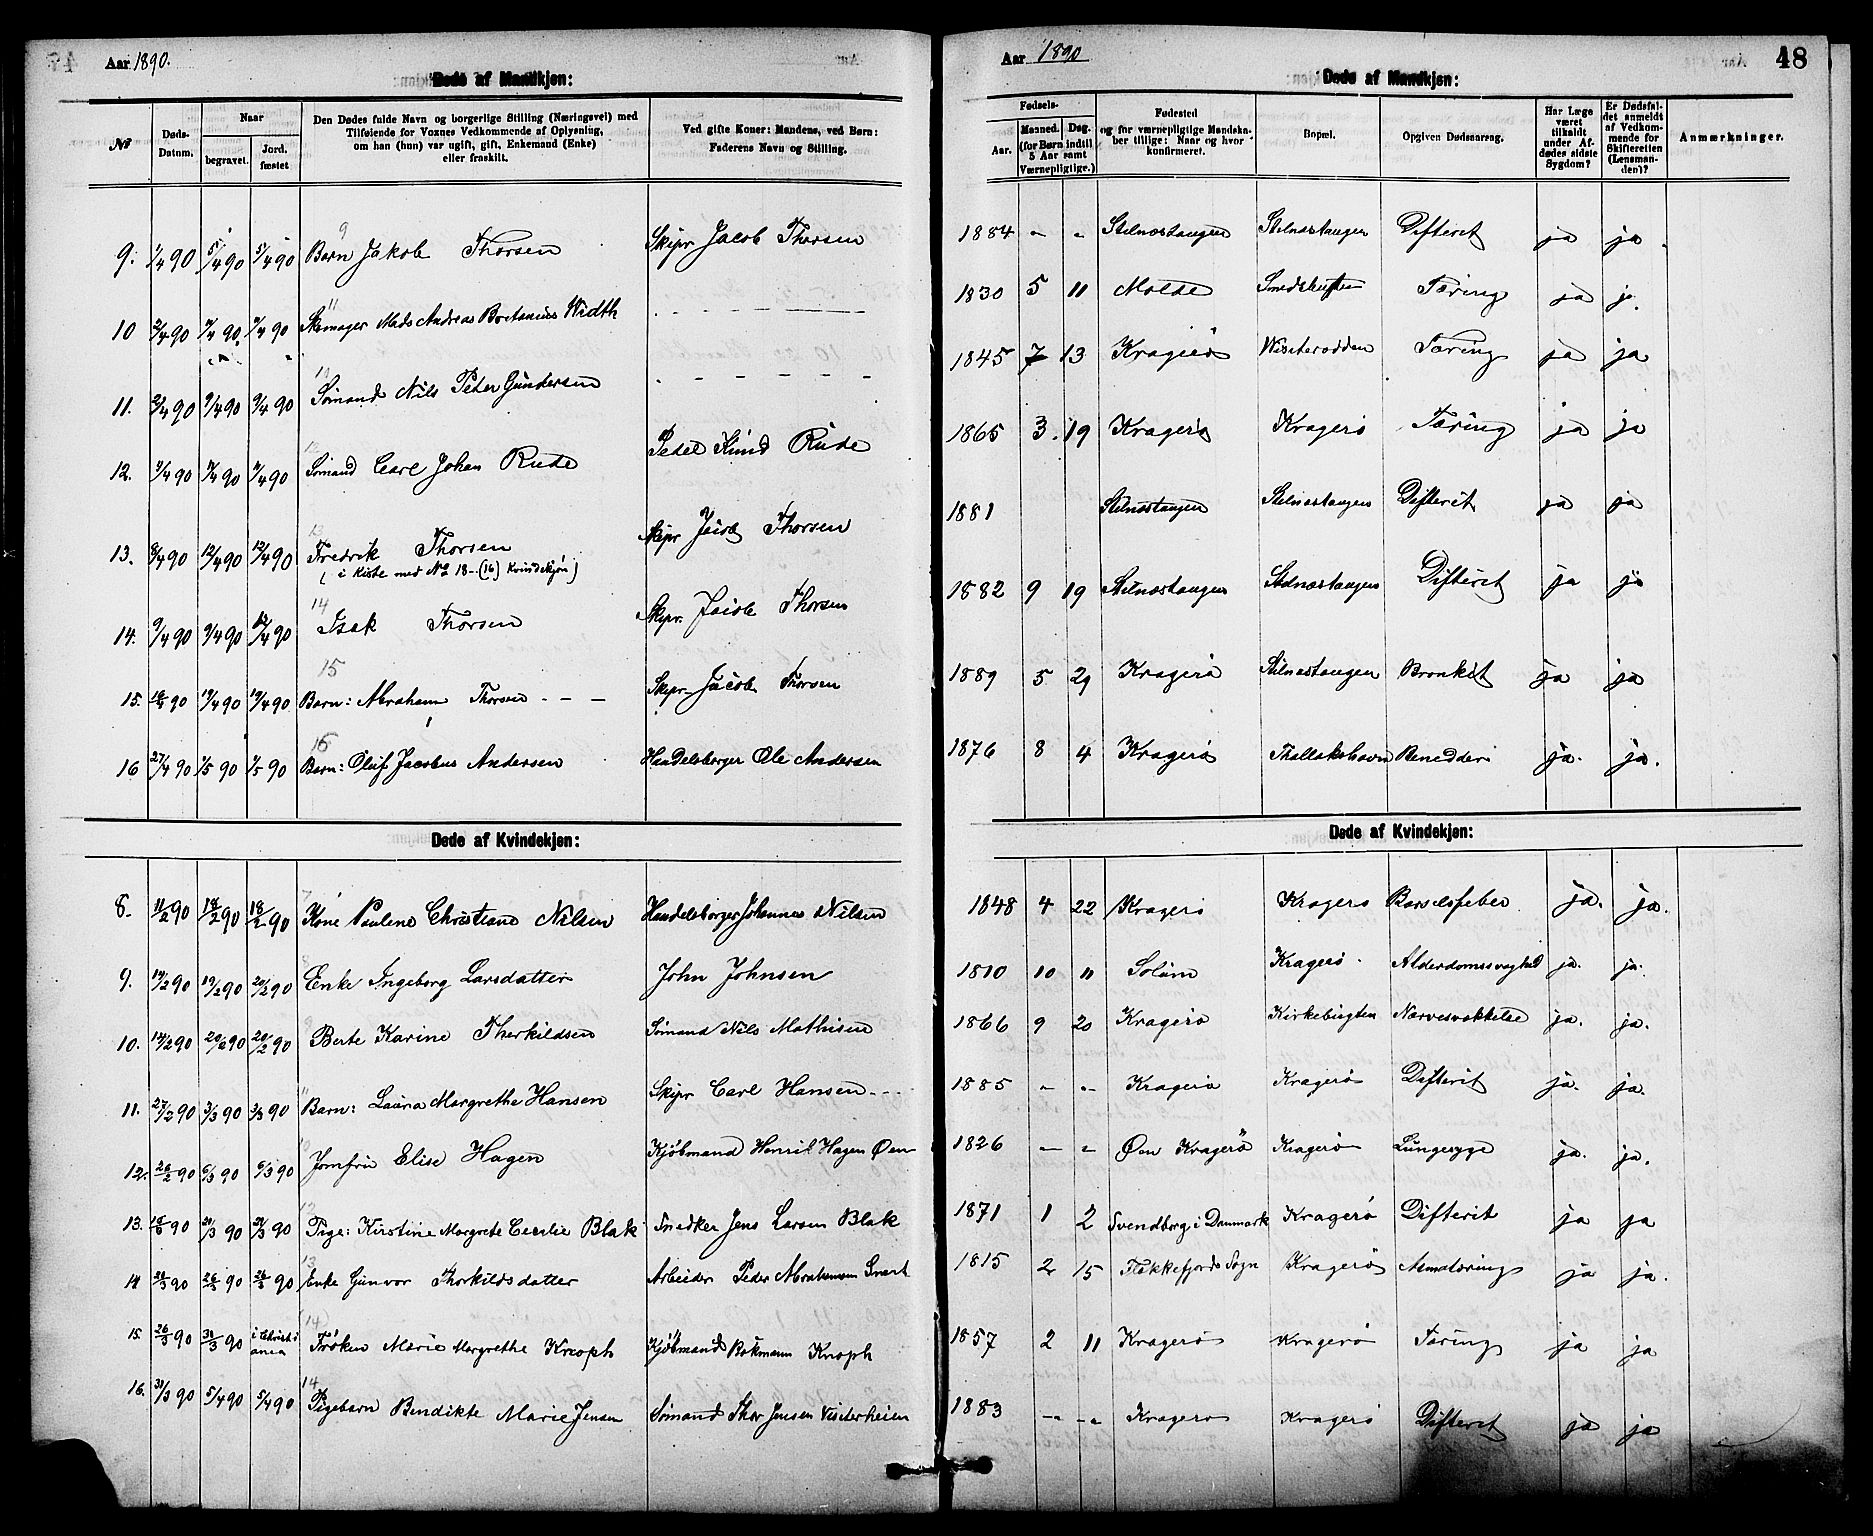 Aar 1890.
Døde af Mandkjøn:
No
Døds-Datum.
Naar
begravet.
Jord. fæstet
Den Dødes fulde Navn og borgerlige Stilling (Næringsvei) med
Tilføiende for Voxnes Vedkommende af Oplysning,
om han (hun) var ugift, gift, Enkemand (Enke)
eller fraskilt.
Ved gifte Koner: Mandens, ved Børn:
Faderens Navn og Stilling.
9. 1/4 90 5/4 90 5/4 90 Barn Jakob Thorsen Skipr Jacob Thorsen
10 2/4 90 Skomager Mads Andreas Width
11. 9/4 90 9/4 90 Sømand Nils Peter Gundersen
12. Sømand Carl Johan Rude Peder Rude
13. 8/4 90 12/4 90 12/4 90 Fredrik Thorsen Skipr Jacob Thorsen
( i Kiste med No 18 - (16) Kvindekjøn )
14. 9/4 90 9/4 90 12/4 90 Isak Thorsen Skipr. Jacob Thorsen
15. 19/4 90 19/4 90 Barn: Abraham Thorsen - - - Skipr Jacob Thorsen
16 27/4 90 1/5 90 1/5 90 Barn: Oluf Jacobus Andersen Handelsborger Ole Andersen
Døde af Kvindekjøn:
8. 11/2 90 18/2 90 18/2 90 Kone Pauline Christiane Nilsen Handelsborger Johannes Nilsen
9. 14/2 90 19/2 90 20/2 90 Enke Ingeborg Larsdatter John Johnsen
10. 14/2 90 20/2 90 20/2 90 Berte Karine Therkildsen Sømand Nils Mathisen
11. 27/2 90 3/3 90 3/3 90 Barn: Laura Margrethe Hansen Skipr Carl Hansen - - -
12. 28/2 90 6/3 90 6/3 90 Jomfru Elise Hagen Kjøbmand Henrik Hagen Øen
13. 21/3 90 21/3 90 Pige: Kirstine Margrete Cecilie Blak Snedker Jens Larsen Blak
14 26/3 90 26/3 90 Enke Gunvor Thorkildsdatter Arbeider Peder Abrahamsen
15. 26/3 90 31/3 90 i Christiania Frøken Marie Margrethe Knoph Kjøbmand Knoph
16. 31/3 90 5/4 90 5/4 90 Pigebarn Bendikte Marie Jensen Sømand Thor Jensen Visterheien
Aar 1890
48
Døde af Mandkjøn:
Fødsels-
Aar.
Maaned. Dag.
(for Børn indtil
5 Aar samt
Værnepligtige.)
Fødested
og for værnepligtige Mandska-
ber tillige: Naar og hvor
konfirmeret.
Bopæl.
Opgiven Dødsaarsag.
Har Læge
været
tilkaldt
under Af-
dødes sidste
Sygdom?
Er Dødsfal-
det anmeldt
af Vedkom-
mende for
Skifteretten
(Lensman-
den)?
Anmærkninger.
1884 " " Stilnæstangen Stilnæstangen Difterit ja ja.
1830 5 11 Molde Smedsbugten Tæring ja ja.
1845 7 13 Kragerø Wisterodden Tæring ja ja
1865 3. 19 Kragerø Kragerø Tæring ja ja
1881 Stilnæstangen Stilnæstangen Difterit ja ja
1882 9 19 Stilnæstangen Stilnæstangen Difterit ja ja
1889 5 29 Kragerø Stilnæstangen Bronkit ja ja
1876 8 4 Kragerø Thallakshavn Benedderi ja. ja.
Døde af Kvindekjøn:
1848 4 22 Kragerø Kragerø Barselsfeber ja. ja.
1810 10 11 Solum Kragerø. Alderdomssvaghed ja. ja.
1866 9 20 Kragerø Kirkebugten Nervesvækkelse ja. ja.
1885 " " Kragerø Kragerø Difterit ja. ja.
1826 — " Øen Kragerø Kragerø Lungesyge ja. ja.
1871 1 2 Svendborg i Danmark Kragerø Difterit ja ja
1815 2 15 Flekkefjords Sogn Kragerø ja ja.
1857 2 11 Kragerø Kragerø Tæring ja ja
1883 " " Kragerø Kragerø Difterit ja ja